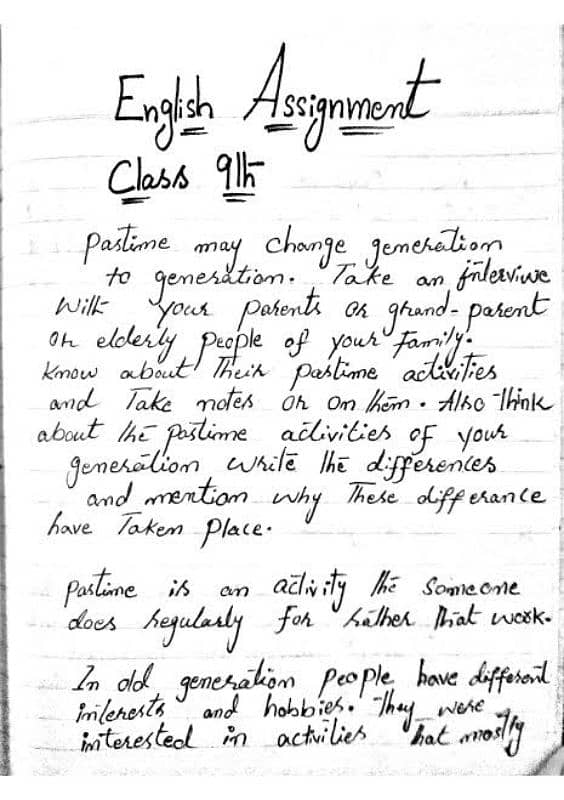 English Assignment
Class 9th
Pastime may change generation
to generation. Take an interviwe
With your parents or grand-parent
or elderly people of your family.
Know about Their pastime activities
and Take notes or on them. Also Think
about the pastime activities of your
generation write the differences
and mention why These differance
have Taken place.
Pastime is an activity the someone
does regularly for rather that work.
In old generation people have different
interests and hobbies. They were
interested in activities that mostly